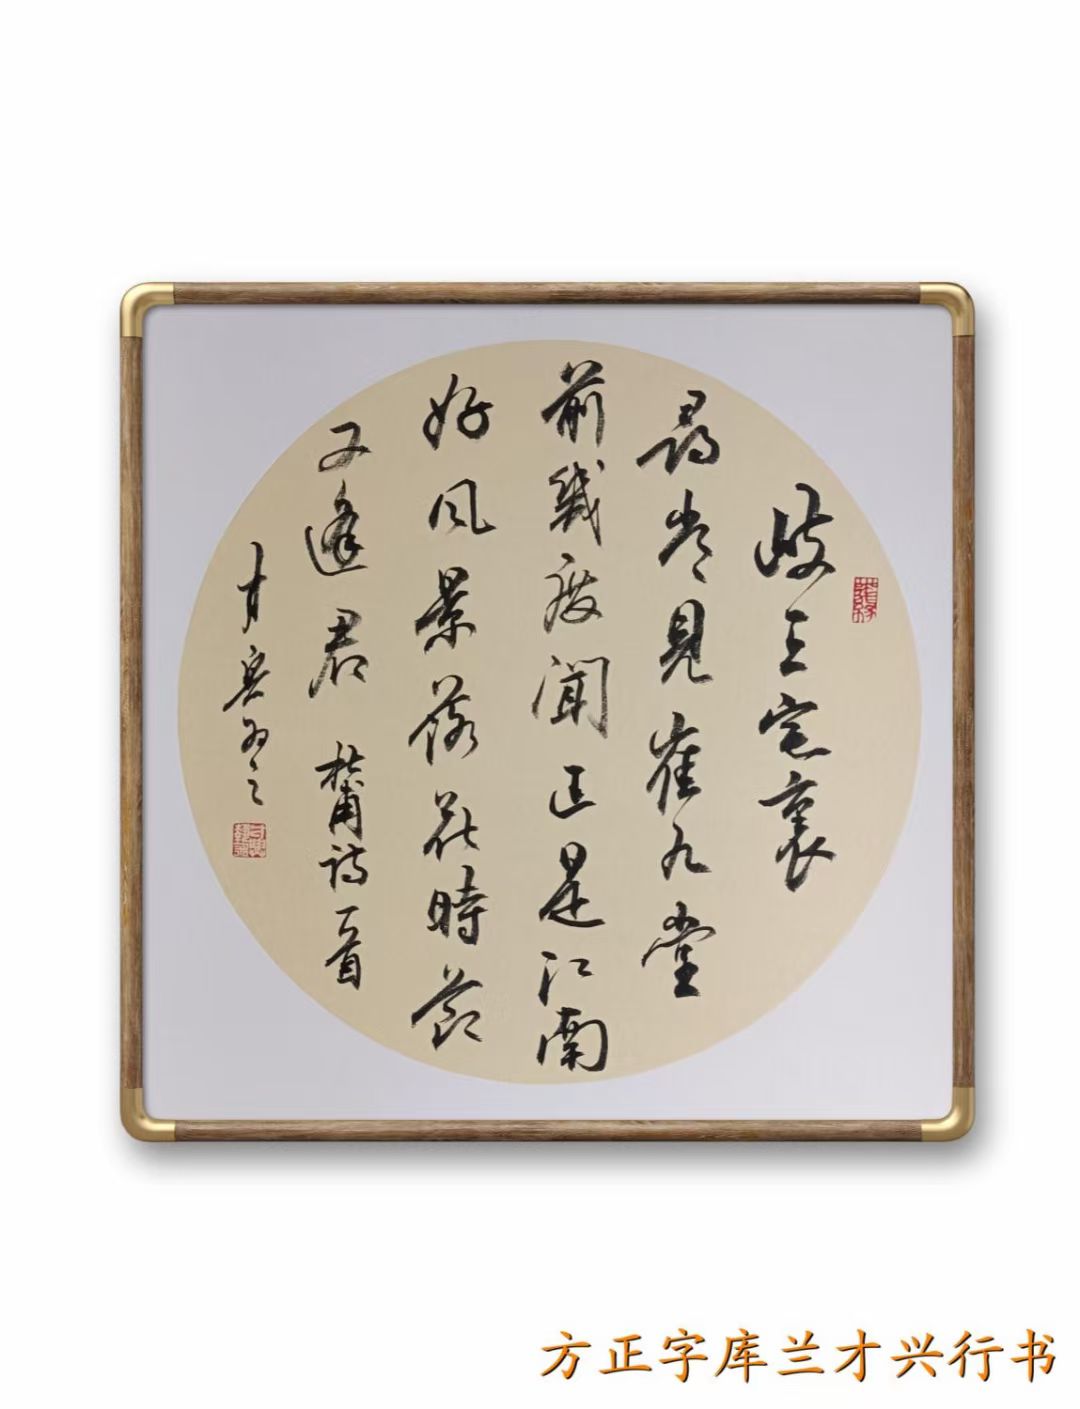 岐王宅裏
尋常見崔九堂
前幾度聞正是江南
好風景落花時節
又逢君 杜甫詩一首
才興之
方正字库兰才兴行书